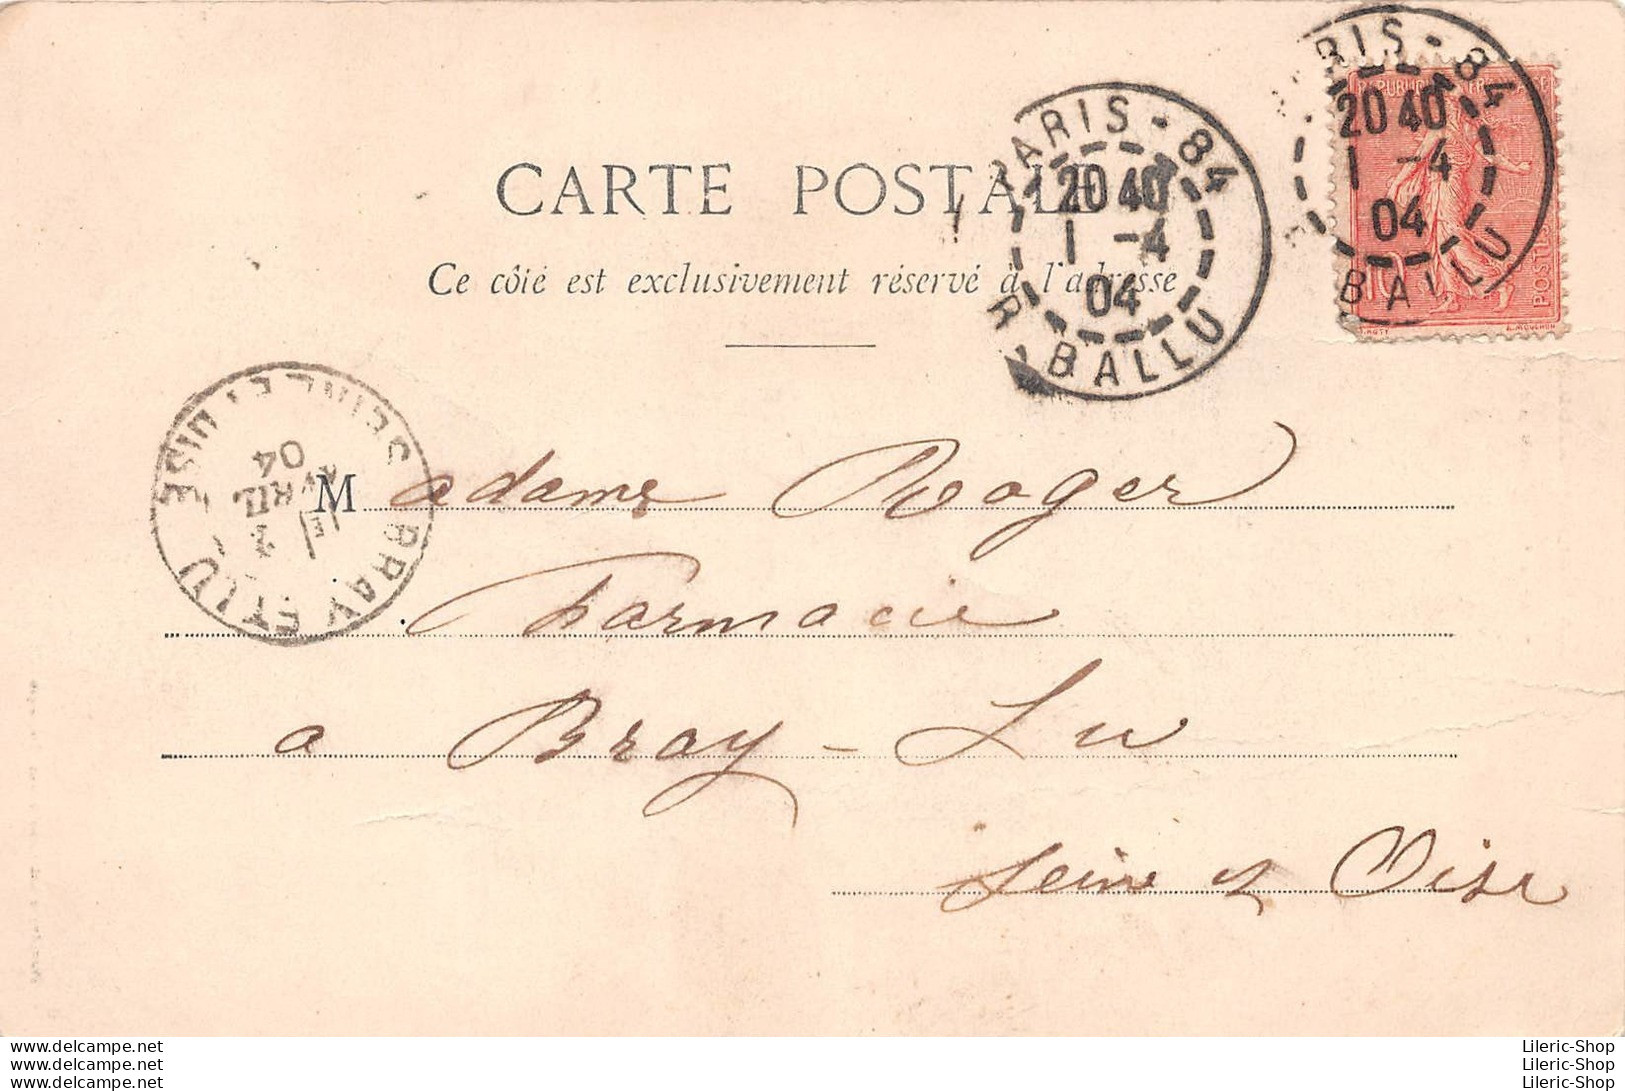 PARIS - 84
20 40
1 -4
04
R. BALLU
RIS - 84
20 40
1 -4
04
BALLU
POSTES
CARTE POSTALE
Ce côté est exclusivement réservé à l'adresse
SEINE ET OISE
BRAY ET LU
AVRIL
04
Madame Roger
Pharmacie
a Bray-Lu
Seine & Oise
www.delcampe.net
www.delcampe.net
www.delcampe.net
Lileric-Shop
Lileric-Shop
Lileric-Shop